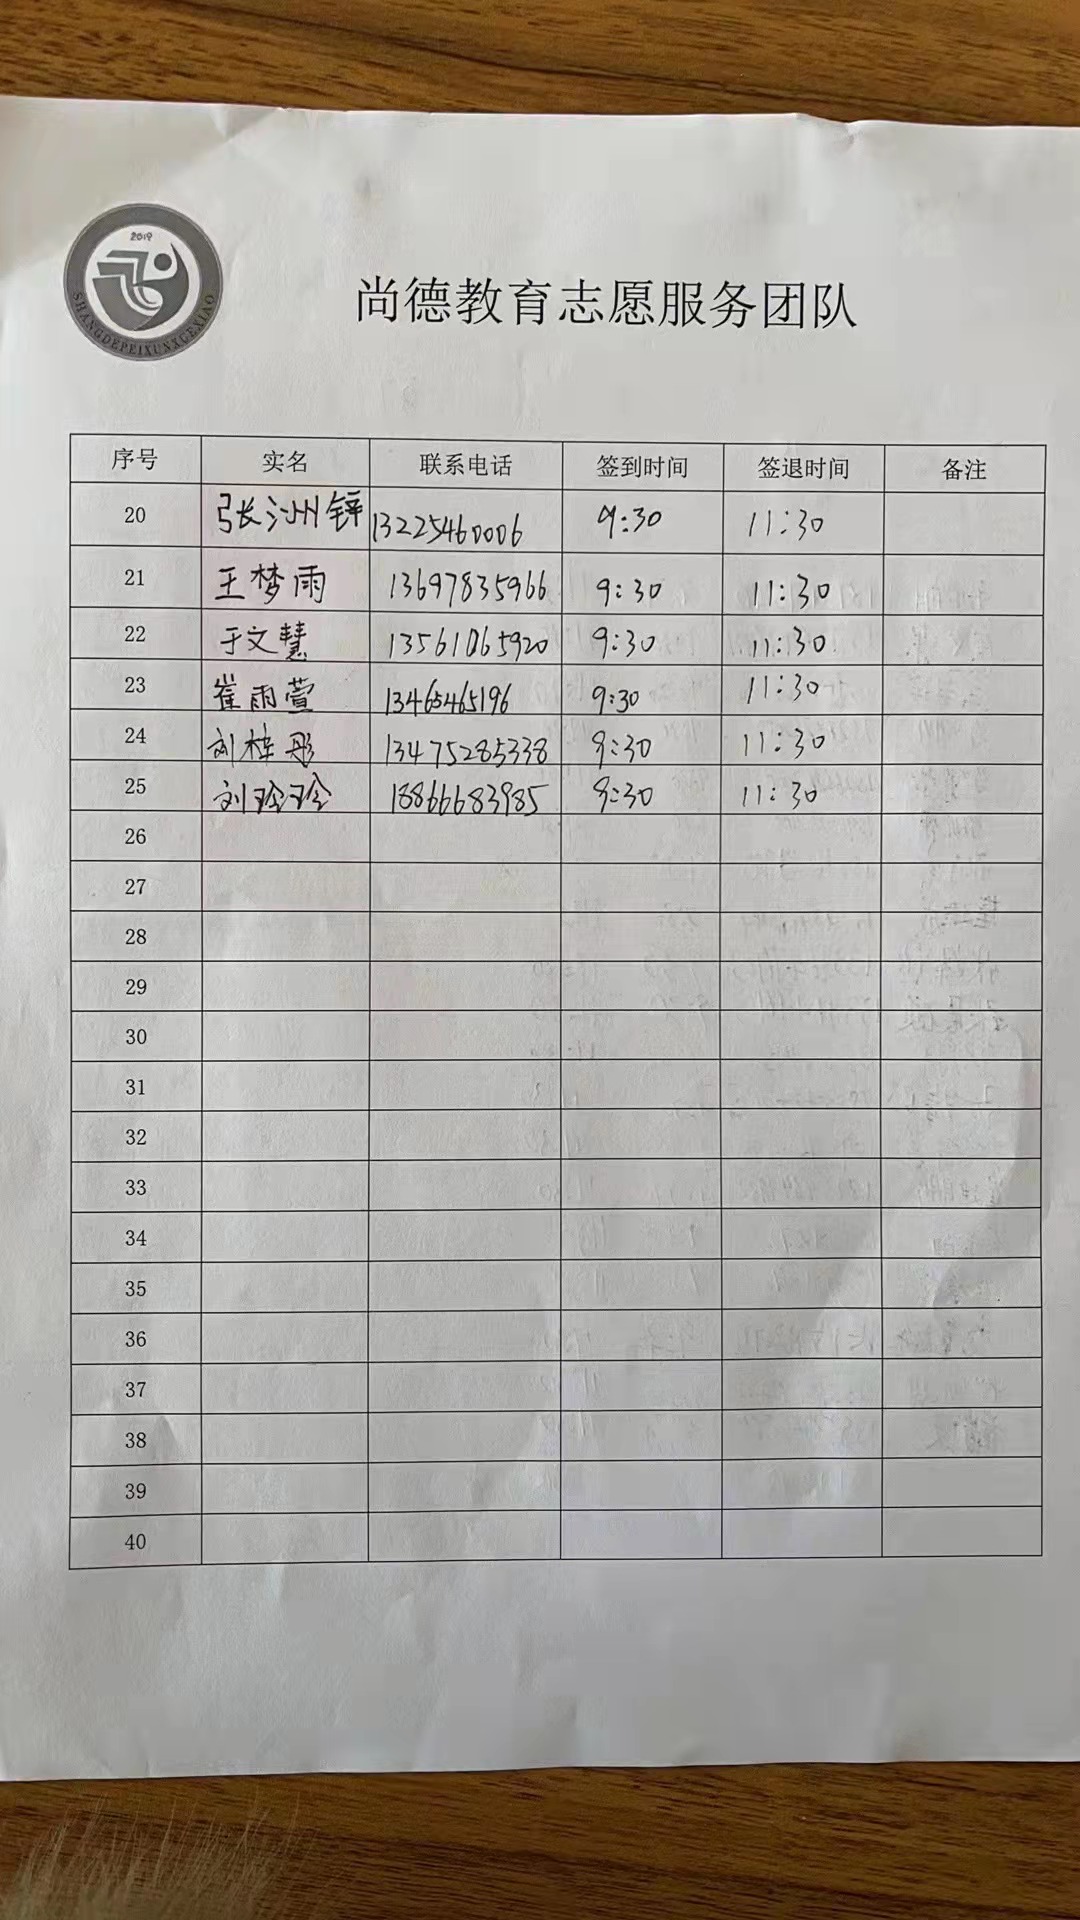 2019
SHANGDEPEIXUNXUEXIAO
尚德教育志愿服务团队
序号 实名 联系电话 签到时间 签退时间 备注
20 张洲锌 13225460006 9:30 11:30
21 王梦雨 13697835966 9:30 11:30
22 于文慧 13561065920 9:30 11:30
23 崔雨萱 13465465196 9:30 11:30
24 刘梓彤 13475285338 9:30 11:30
25 刘玲玲 18866683985 9:30 11:30
26
27
28
29
30
31
32
33
34
35
36
37
38
39
40